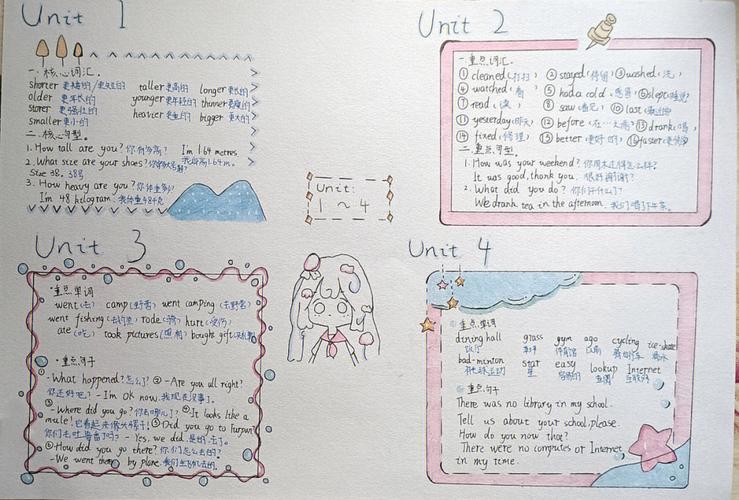 Unit 1
一. 核心词汇.
shorter 更矮的/更短的 taller 更高的 longer 更长的
older 更年长的 younger 更年轻的 thinner 更瘦的
stronger 更强壮的 heavier 更重的 bigger 更大的
smaller 更小的
二. 核心句型.
1. How tall are you? 你有多高? I'm 1.64 metres.
2. What size are your shoes? 我身高1.64m.
Size 38. 38号
3. How heavy are you? 你体重多少?
I'm 48 kilogram.
Unit 2
一. 重点词汇.
① cleaned (打扫) ② stayed (停留) ③ washed (洗)
④ watched (看) ⑤ had a cold (感冒) ⑥ slept (睡觉)
⑦ read (读) ⑧ saw (看见) ⑩ last
⑪ yesterday (昨天) ⑫ before (在…之前) ⑬ drank (喝)
⑭ fixed (修理) ⑮ better (更好的) ⑯ faster
二. 重点句型.
1. How was your weekend? 你周末过得怎么样?
It was good, thank you. 很好谢谢?
2. What did you do? 你干什么了?
We drank tea in the afternoon. 我们喝了下午茶.
Unit:
1 ~ 4
Unit 3
·重点单词
went (去) camp (野营) went camping (去野营)
went fishing (去钓鱼) rode (骑) hurt (受伤)
ate (吃) took pictures (照相) bought gift
·重点句子
- What happened? 怎么了? ② - Are you all right?
你还好吧? - I'm OK now. 我现在没事了.
③
- Where did you go? 你去哪儿了? ④ It looks like a
mule! 它看起来像头骡子! ⑤ Did you go to Turpan?
你们去吐鲁番了吗? - Yes, we did. 是的, 去了.
⑥ How did you go there? 你们怎么去的?
- We went there by plane. 我们坐飞机去的.
Unit 4
重点单词
dining hall grass gym ago cycling ice-skate
饭厅 草坪 体育馆 以前 骑自行车 滑冰
bad-minton star easy look up Internet
羽毛球运动 星 容易的 查阅 互联网
重点句子
There was no library in my school.
Tell us about your school, please.
How do you know that?
There were no computers or Internet
in my time.